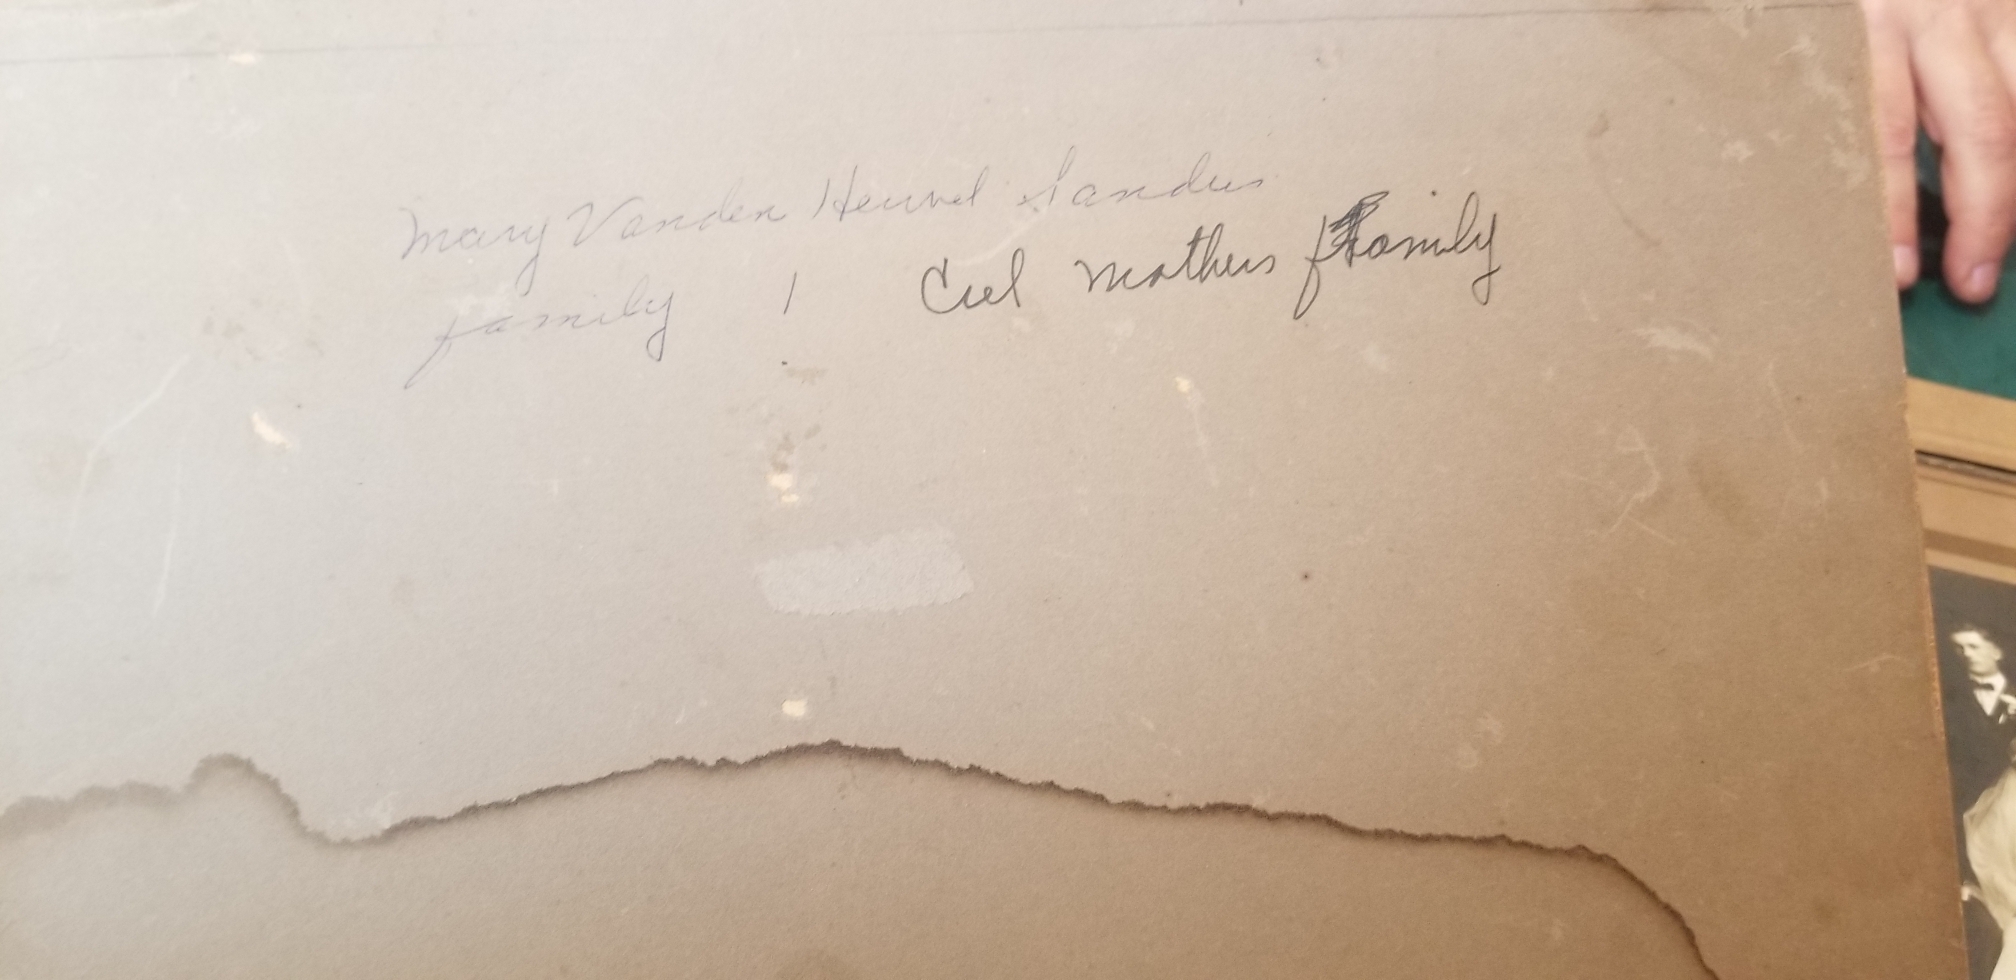 Mary Vanden Heuvel Sanders
family / Ciel mothers family